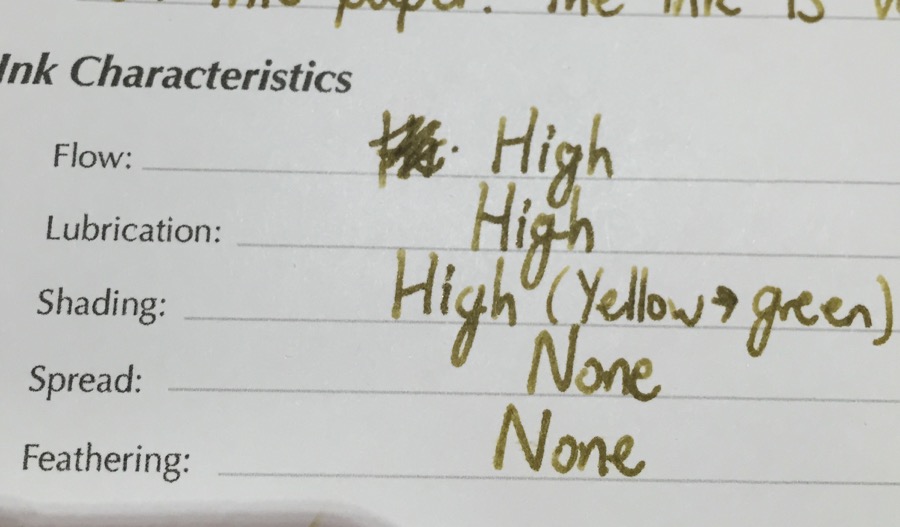 into paper. The ink is
Ink Characteristics
Flow: High
Lubrication: High
Shading: High (Yellow → green)
Spread: None
Feathering: None